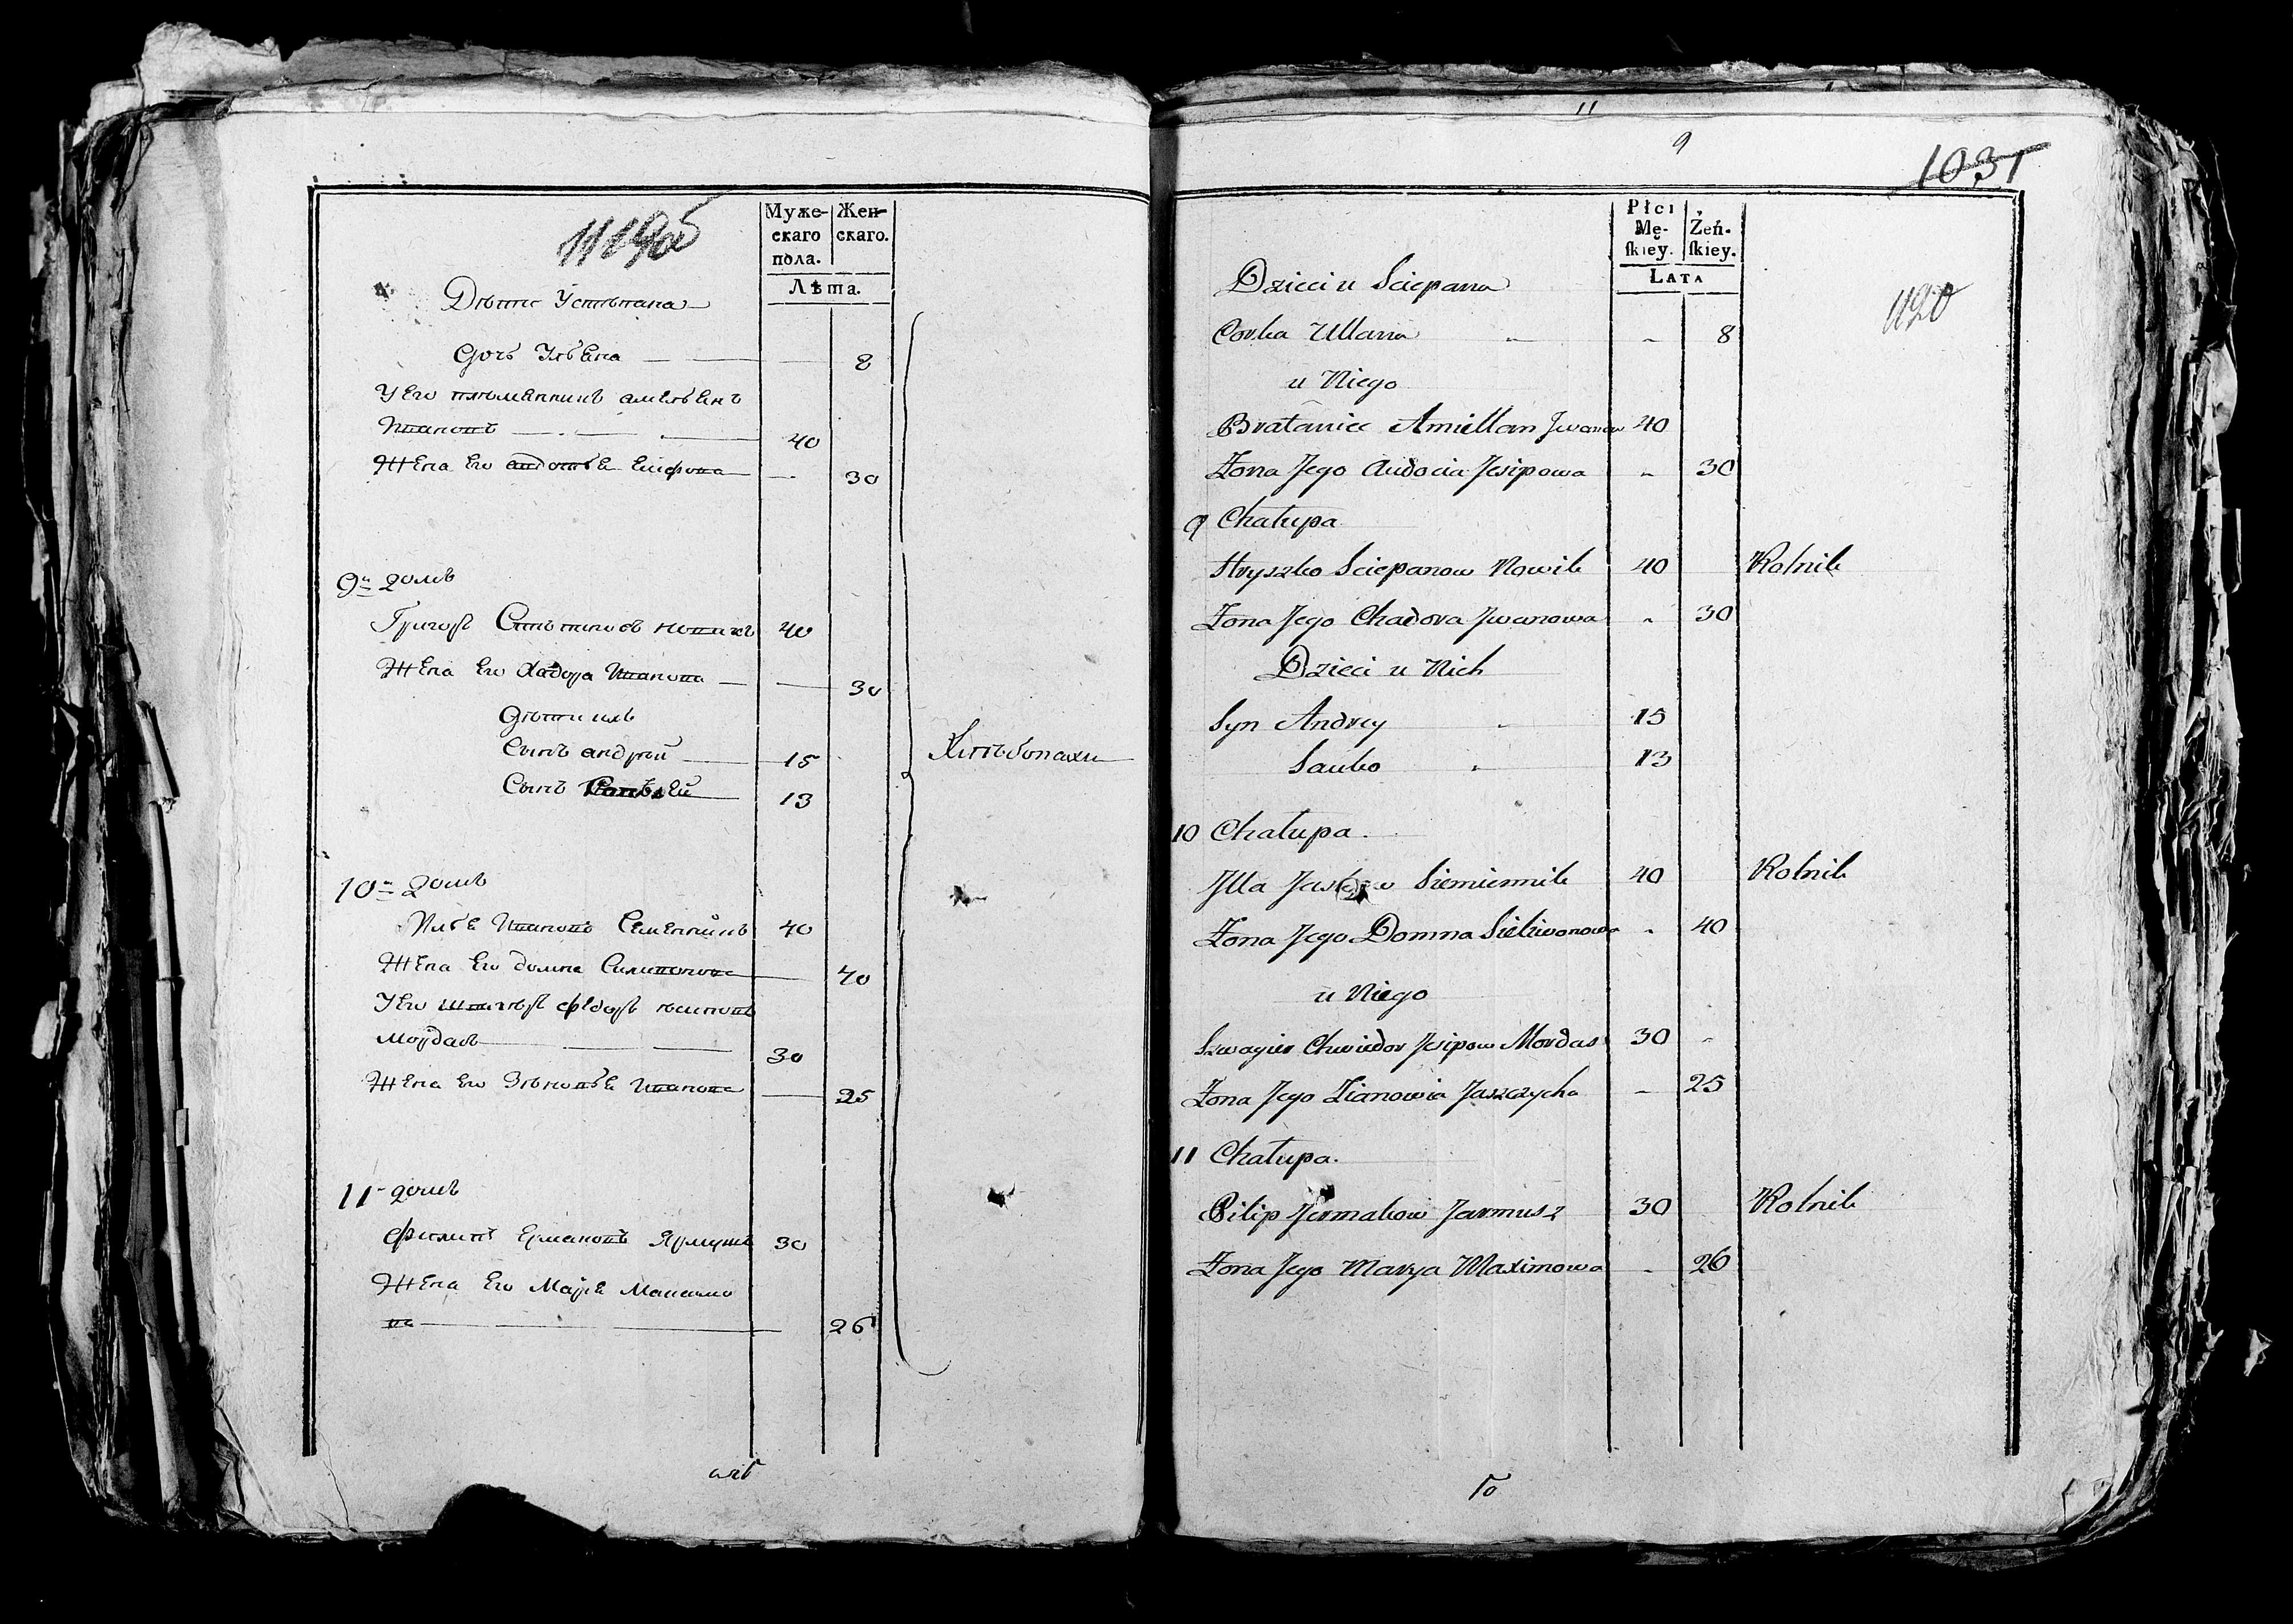 1119об
Муже-
скаго
пола.
Жен-
скаго.
Лѣта.
Дѣти Устѣпана
дочъ Улѣяна 8
У его племянникъ амелѣянъ
Ивановъ 40
Жена его авдотѣя 30
9й домъ
Григорѣ Стѣпановъ новикъ 40
Жена его Хадора Иванова 30
дѣти ихъ
Сынъ андрей 15
Сынъ 13
Хлѣбопахи
10й домъ
Илѣя Ивановъ Семенникъ 40
Жена его домна 40
У его шваґерѣ федорѣ
мордасъ 30
Жена его Зѣновѣя Иванова 25
11 домъ
Филипъ Ермаковъ Ярмушъ 30
Жена его Марѣя Макасимо
ва 26
11
9
1031
1120
Płci
Mę-
ſkiey.
Żeń-
ſkiey.
Lata
Dzieci u Sciepana
Corka Ullana 8
u Niego
Bratanice Amiellan Jwanow 40
Żona Jego Audocia Jesipowa 30
9 Chałupa
Hryszko Sciepanow Nowik 40 Rolnik
Żona Jego Chadora Jwanowa 30
Dzieci u Nich
Syn Andrey 15
Sauko 13
10 Chałupa.
Jlla Siemiennik 40 Rolnik
Żona Jego Domna Sieliwonowa 40
u Niego
Szwagier Chwiedor Jesipow Mordas 30
Żona Jego Zianowia Jaszczycha 25
11 Chałupa.
Pilip Jermakow Jarmusz 30 Rolnik
Żona Jego Marya Maximowa 26